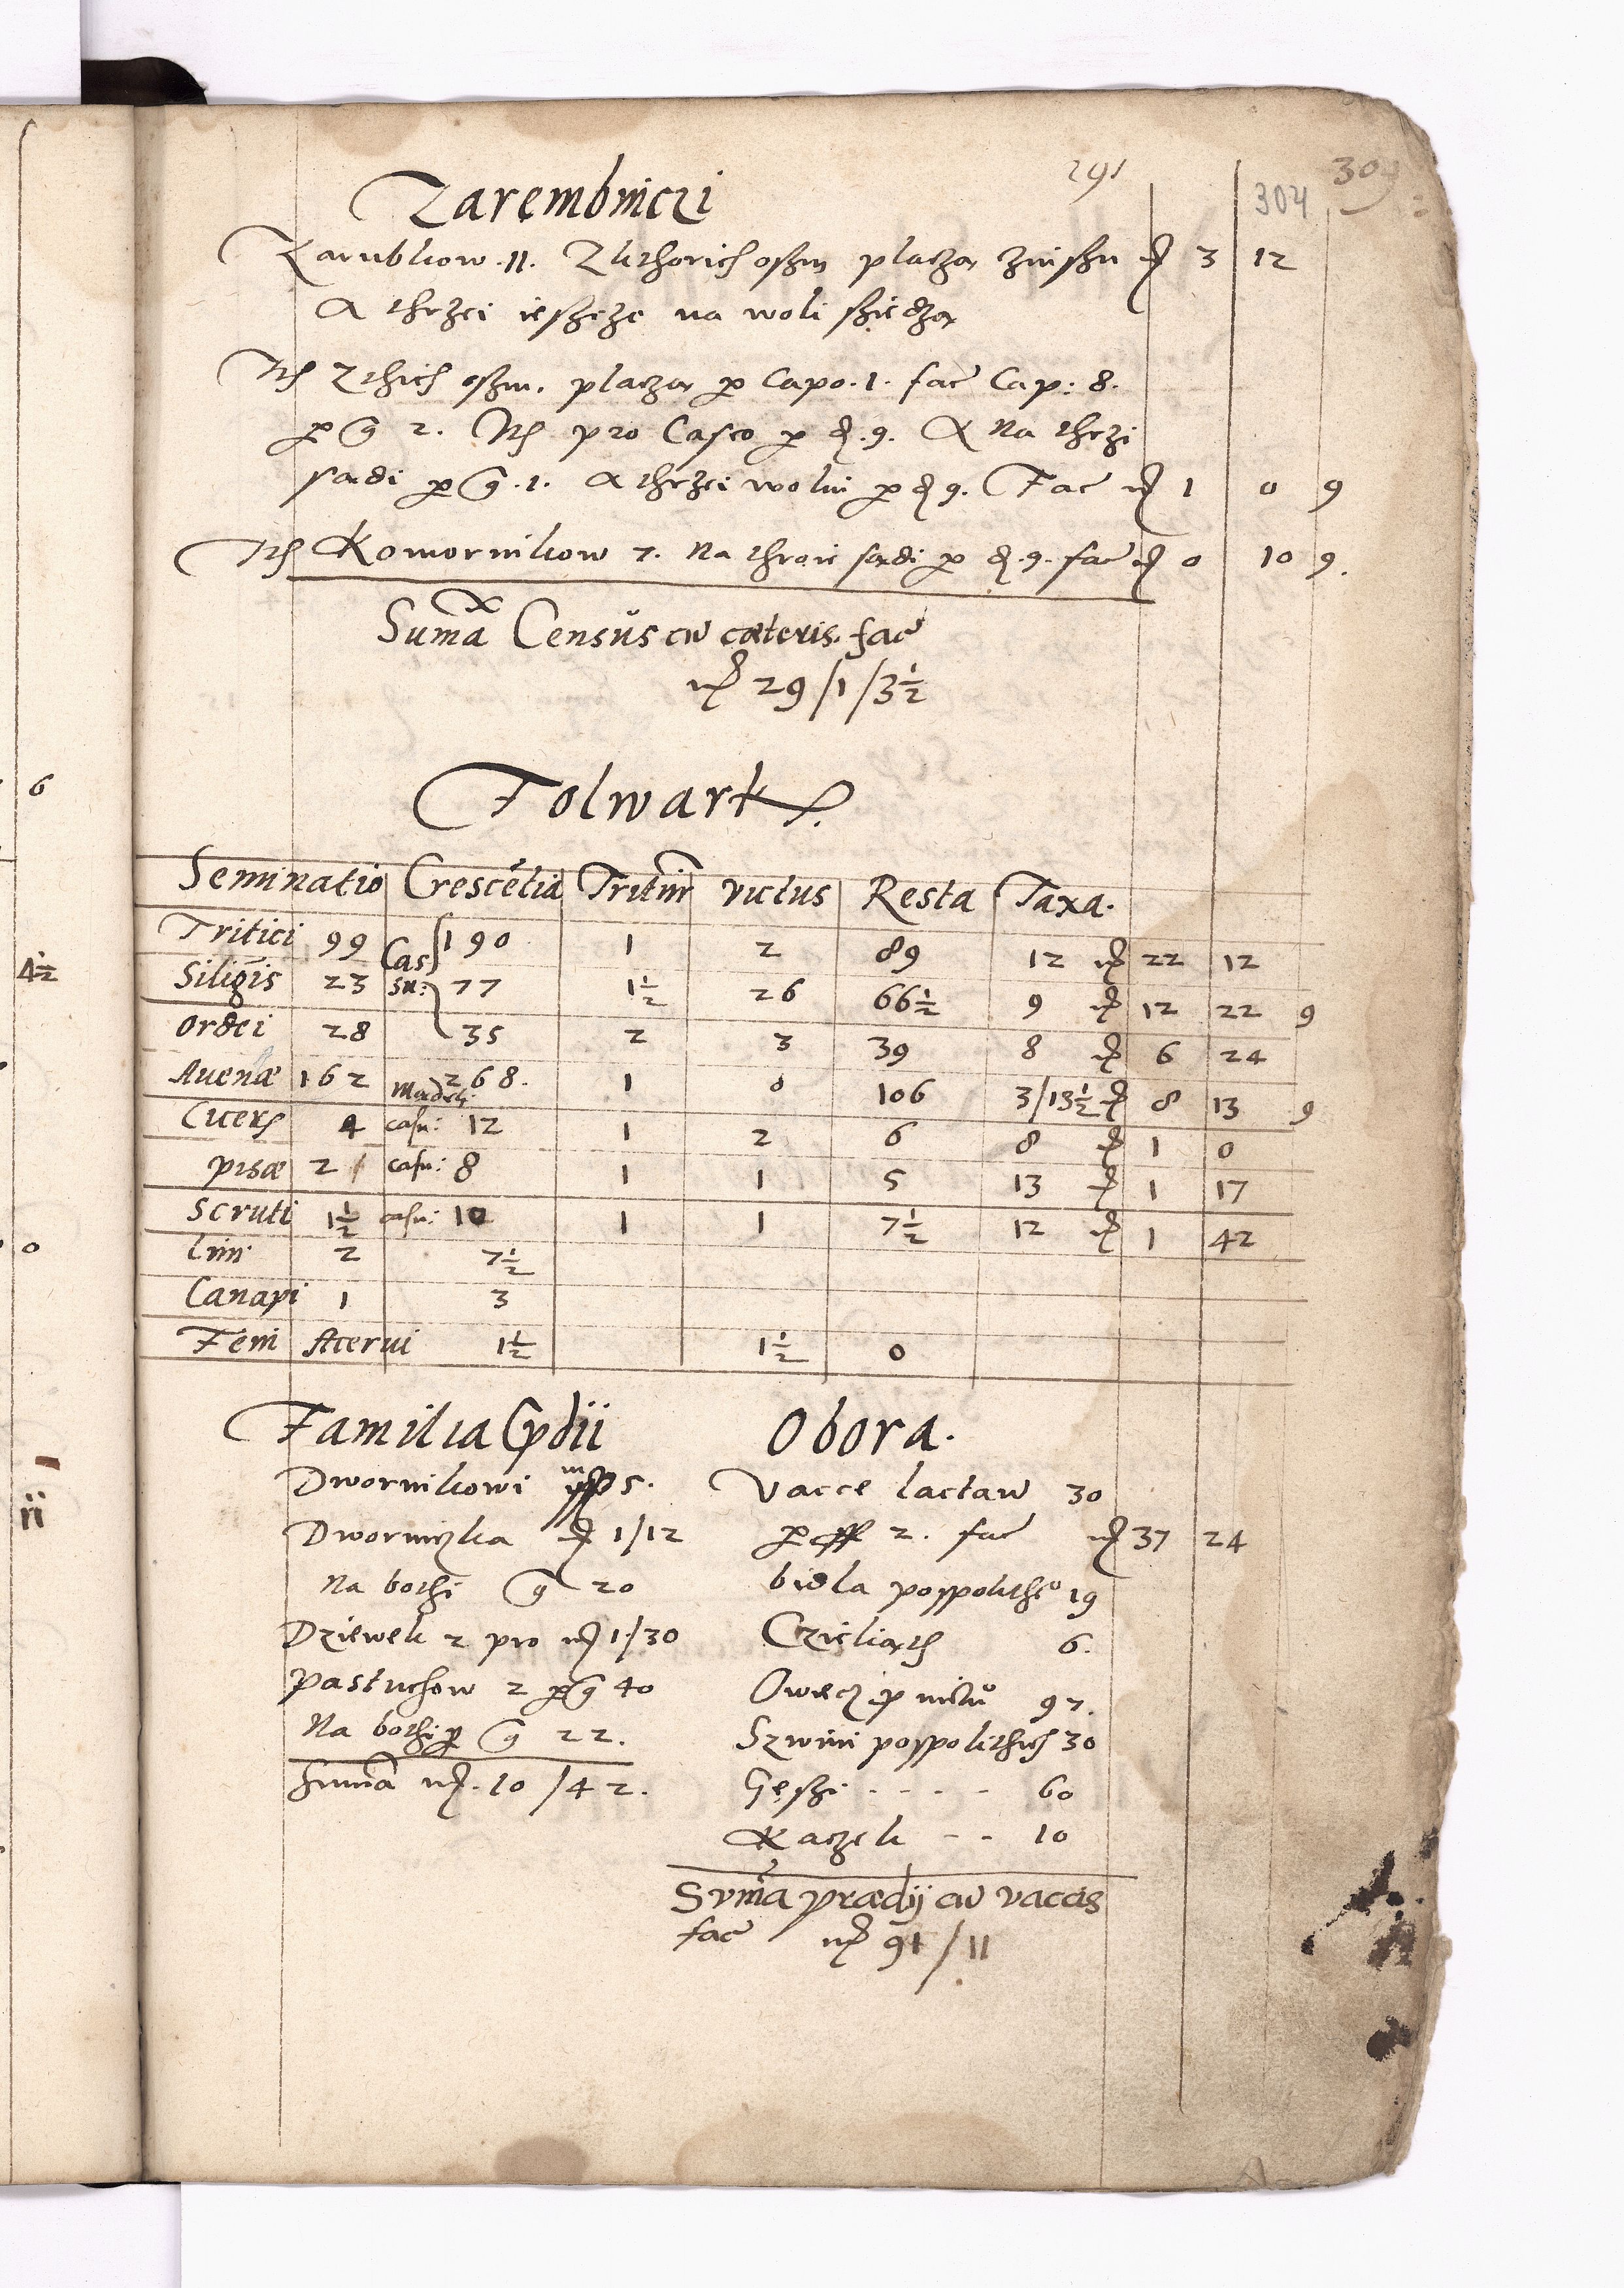 291
304
304
Zarembniczi
Zarublikow .11. Zktorich oszm placza zinszu 3 12
A thrzei ieszcze na woli sziedza
Zthich oszm. placza per Capo. 1. fac Cap: 8.
per g 2. pro Caseo per d. 9. A Na thrzi
sadi per g. 1. A thrzei wolni per d 9. Fac 1 0 9
Komornikow 7. Na throie sadi per d. 9. fac 0 10 9.
Suma Census cu cæteris. fac
29 / 1 / 3 ½
Folwark.
Seminatio Crescetia Tritur Victus Resta Taxa.
Tritici 99 Cas 190 1 2 89 12 22 12
Siligis 23 su: 77 1½ 26 66½ 9 12 22 9
Ordei 28 35 2 3 39 8 6 24
Auenæ 162 Madeli 268. 1 0 106 3/13½ 8 13 9
Cicers 4 casu: 12 1 2 6 8 1 0
pisæ 2 casu: 8 1 1 5 13 1 17
Scruti 1½ casu: 10 1 1 7½ 12 1 42
Lini 2 7½
Canapi 1 3
Feni Acerui 1½ 1½ 0
Familia pdii
Dwornikowi 5.
Dwornizka 1/12
Na bothi g 20
Dziewek 2 pro 1/30
pastuchow 2 per g 40
Na bothi per g 22.
Summa 10 / 42.
Obora.
Vacce lactaw 30
per ff 2. fac 37 24
bidla pospolithe 19
Czieliath 6.
Owiecz p victu 97.
Szwini pospolithich 30
Gęszi - - - - 60
Kaczek - - 10
Suma prædij cu vaccis
fac 91 / 11
6
4½
0